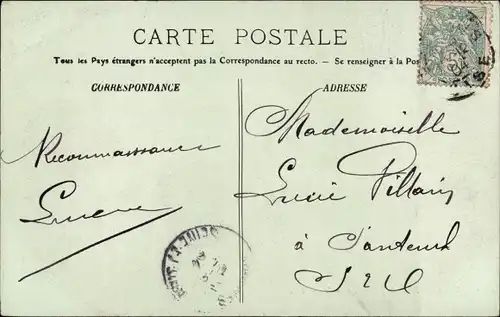 CARTE POSTALE
Tous les Pays étrangers n'acceptent pas la Correspondance au recto. — Se renseigner à la Pos
CORRESPONDANCE
ADRESSE
Mademoiselle
Reconnaissance
Lucie
à
SEINE-ET-